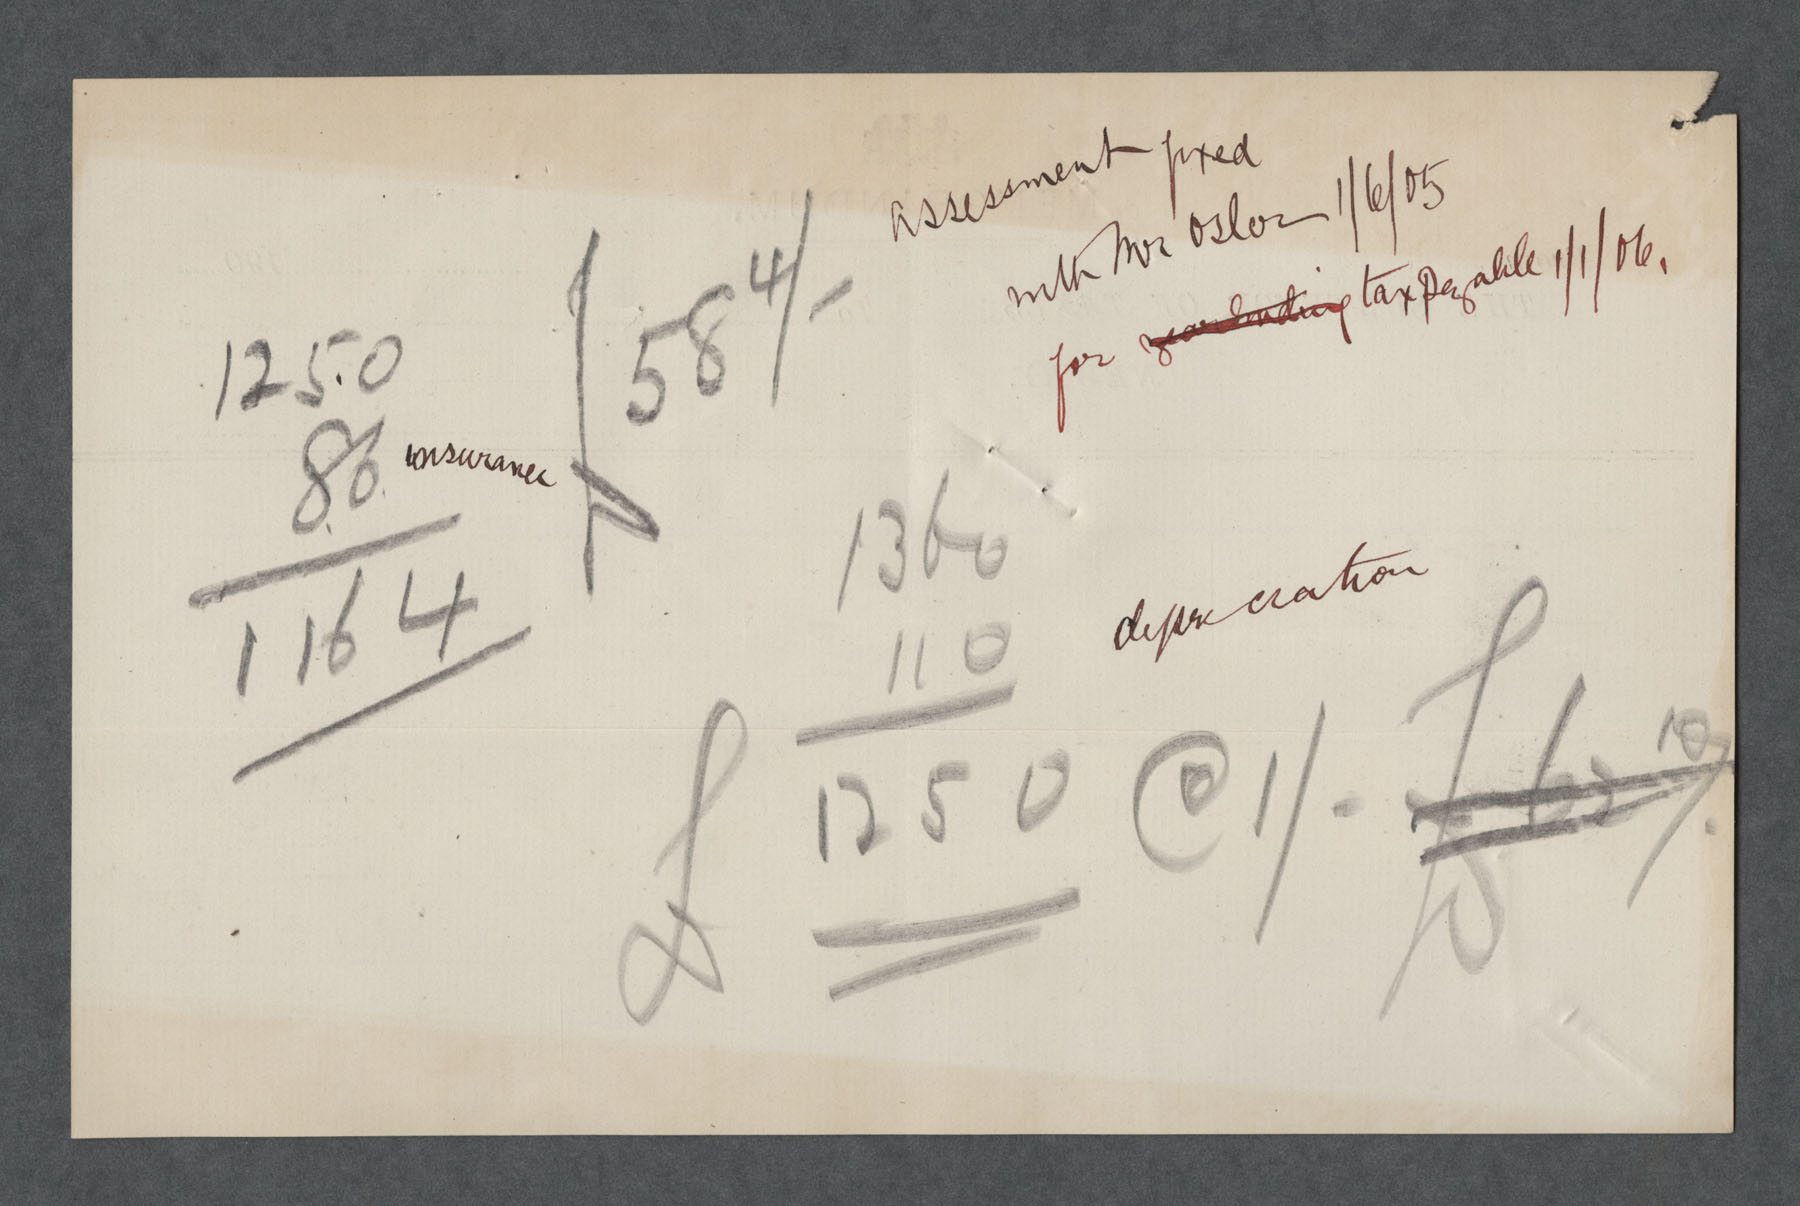 assessment fixed
with Mr Oslor 1/6/05
for year ending tax payable 1/1/06.
58 4/-
1250
86 insurance
1164
1360
110 depreciation
£ 1250 @ 1/- £ 62 10/.